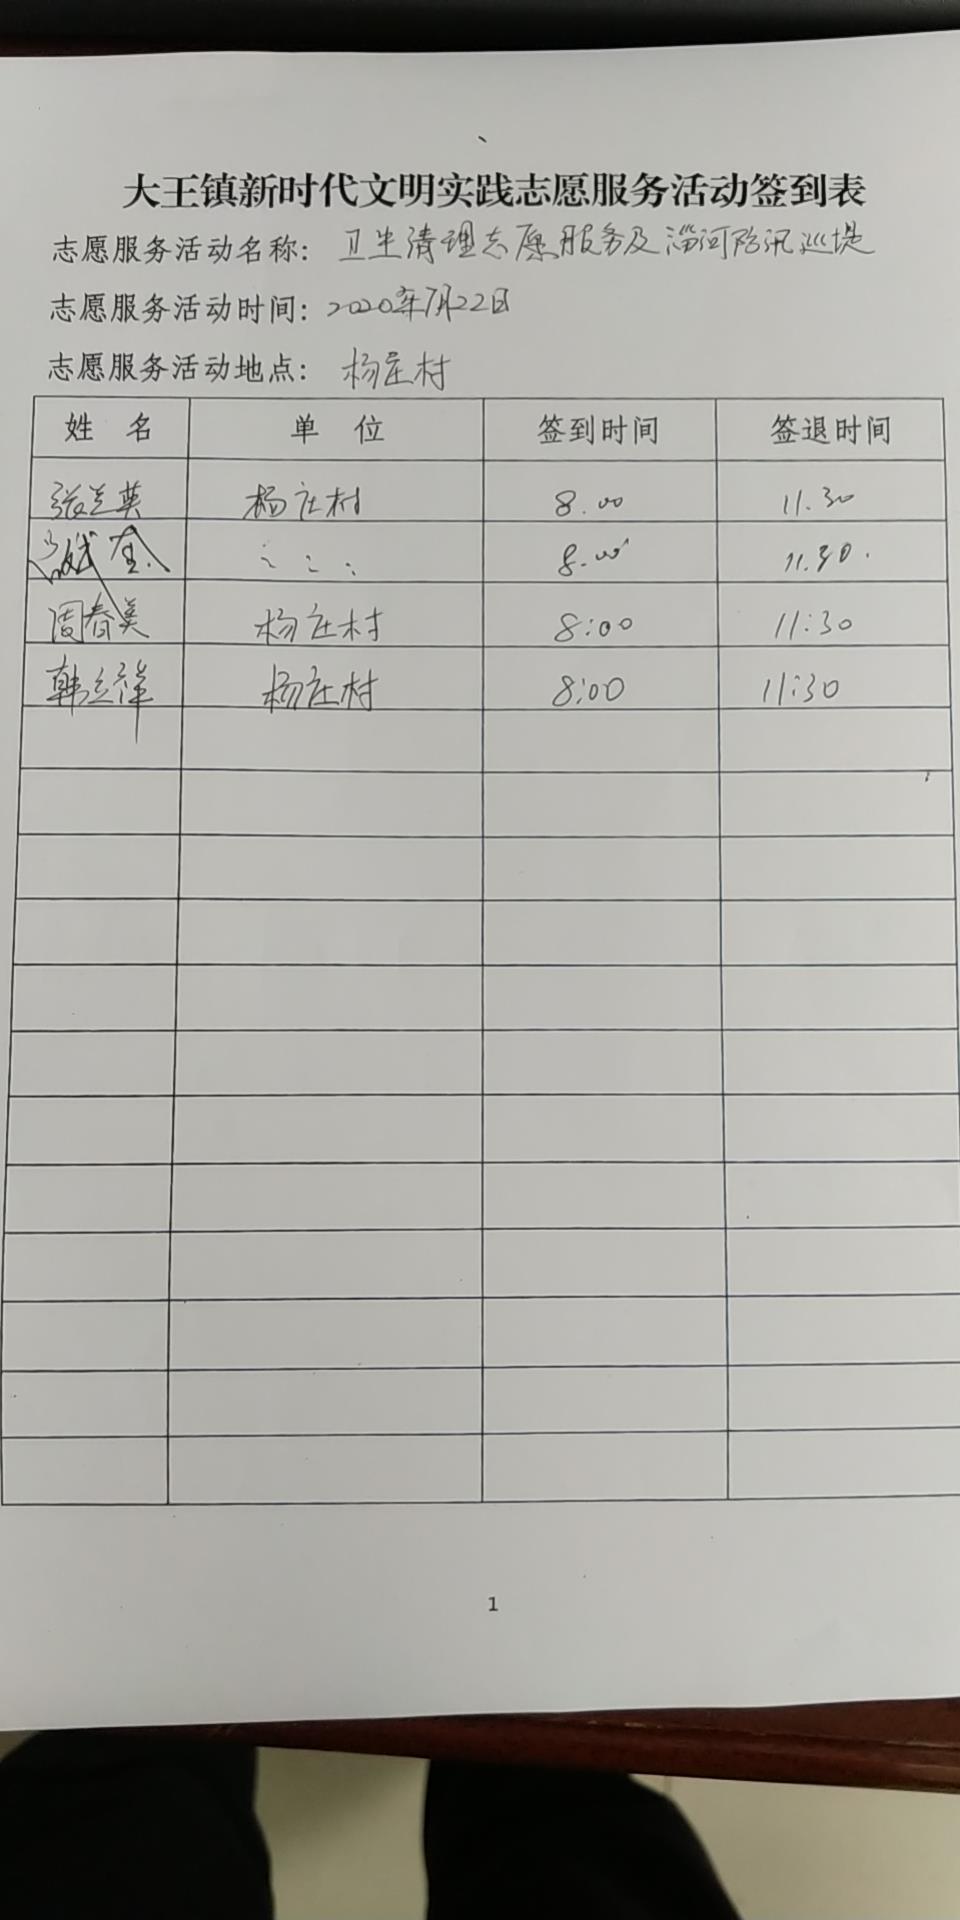 大王镇新时代文明实践志愿服务活动签到表
志愿服务活动名称: 卫生清理志愿服务及淄河防汛巡堤
志愿服务活动时间: 2020年7月22日
志愿服务活动地点: 杨庄村
姓 名 单 位 签到时间 签退时间
张兰英 杨庄村 8.00 11.30
8.00 11.30.
周春美 杨庄村 8:00 11:30
韩立祥 杨庄村 8:00 11:30
1